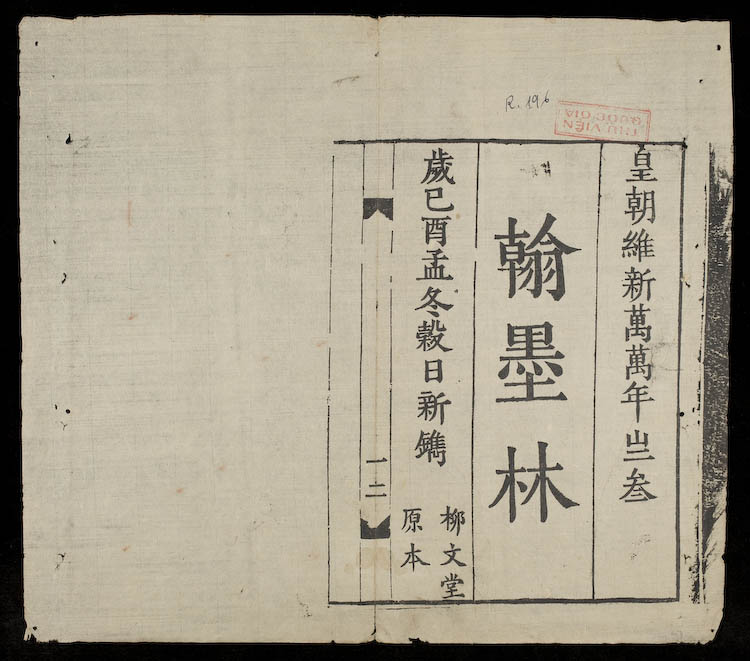 R. 196
THƯ VIỆN
QUỐC GIA
皇朝維新萬萬年㞢叁
翰墨林
歲己酉孟冬穀日新鐫
柳文堂
原本
一二